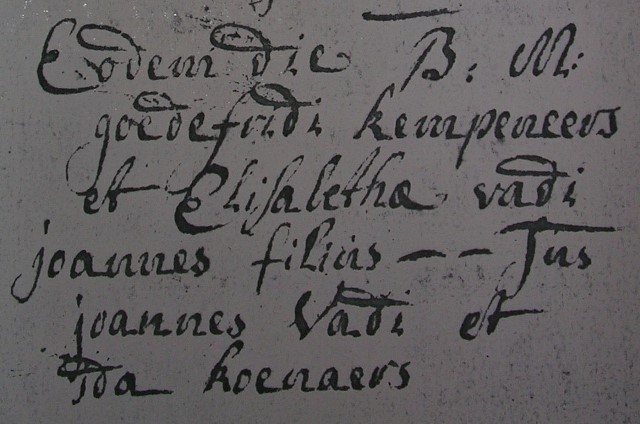 Eodem die B: M:
goedefridi kempeneers
et Elisabethæ vadi
joannes filius — — Sus
joannes Vadi et
Ida koenaers